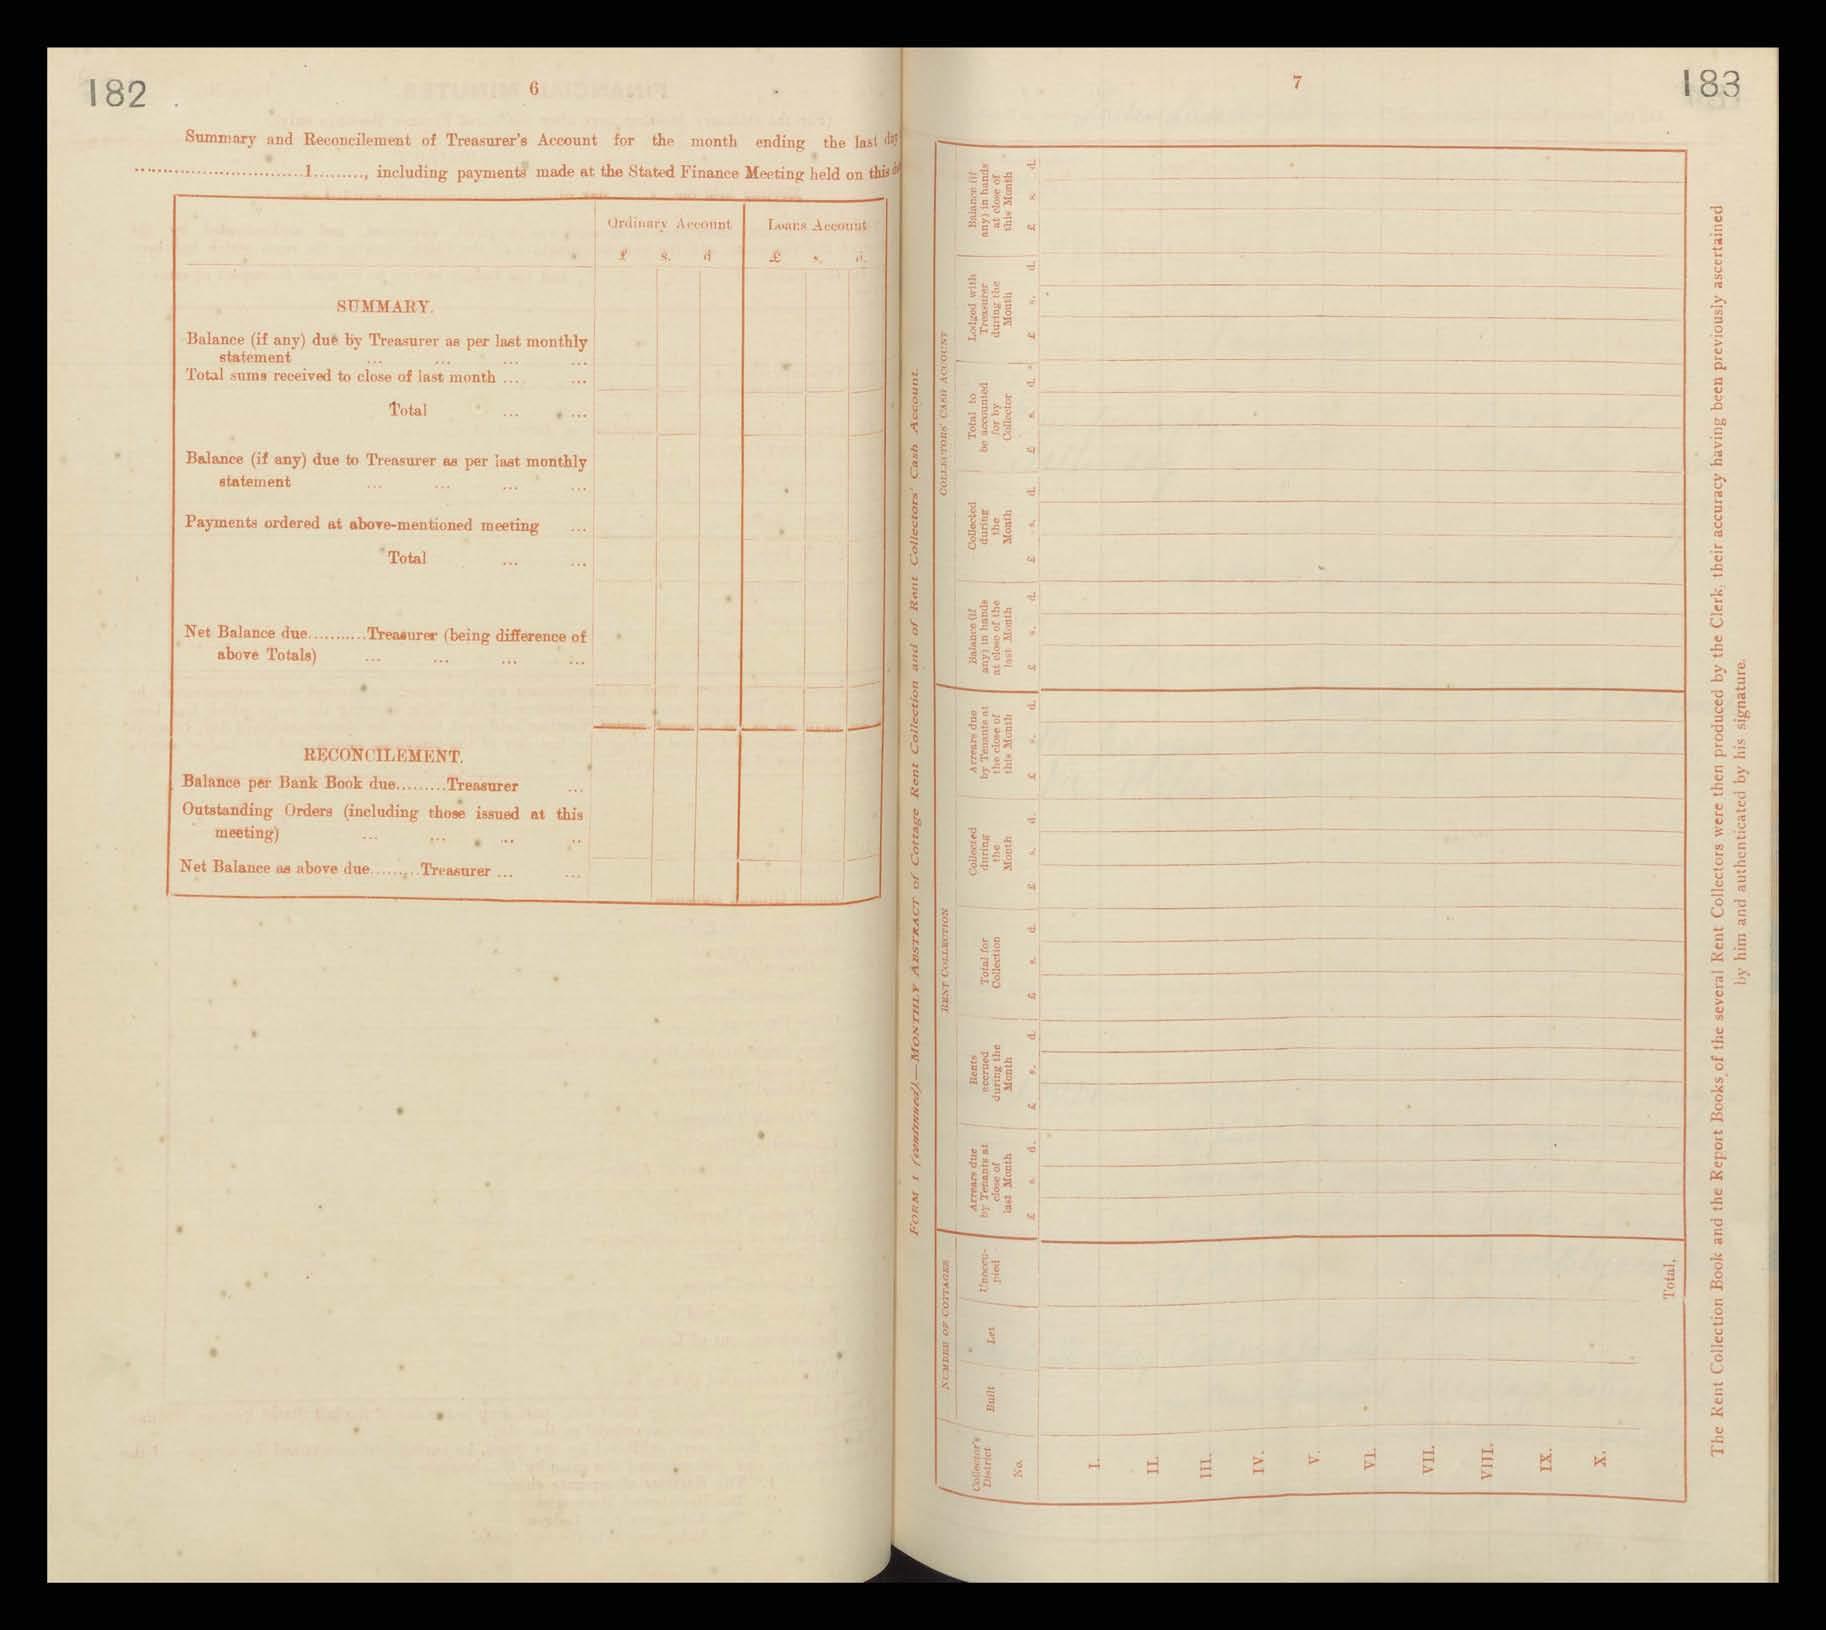 182
6
Summary and Reconcilement of Treasurer's Account for the month ending the last day
..............................1........., including payments made at the Stated Finance Meeting held on this
Ordinary Account Loans Account
£ s. d £ s. d.
SUMMARY.
Balance (if any) due by Treasurer as per last monthly
statement ... ... ... ...
Total sums received to close of last month ... ...
Total ... ...
Balance (if any) due to Treasurer as per last monthly
statement ... ... ... ...
Payments ordered at above-mentioned meeting ...
Total ... ...
Net Balance due..........Treasurer (being difference of
above Totals) ... ... ... ...
RECONCILEMENT.
Balance per Bank Book due.........Treasurer ...
Outstanding Orders (including those issued at this
meeting) ... ... ... ..
Net Balance as above due.........Treasurer ... ...
7
183
FORM 1 (continued).—MONTHLY ABSTRACT of Cottage Rent Collection and of Rent Collectors' Cash Account.
NUMBER OF COTTAGES
RENT COLLECTION
COLLECTORS' CASH ACCOUNT
Collector's
District
No.
Built
Let
Unoccu-
pied
Arrears due
by Tenants at
close of
last Month
£ s. d.
Rents
accrued
during the
Month
£ s. d.
Total for
Collection
£ s. d.
Collected
during
the
Month
£ s. d.
Arrears due
by Tenants at
the close of
this Month
£ s. d.
Balance (if
any) in hands
at close of the
last Month
£ s. d.
Collected
during
the
Month
£ s. d.
Total to
be accounted
for by
Collector
£ s. d.
Lodged with
Treasurer
during the
Month
£ s. d.
Balance (if
any) in hands
at close of
this Month
£ s. d.
I.
II.
III.
IV.
V.
VI.
VII.
VIII.
IX.
X.
Total,
The Rent Collection Book and the Report Books of the several Rent Collectors were then produced by the Clerk, their accuracy having been previously ascertained
by him and authenticated by his signature.